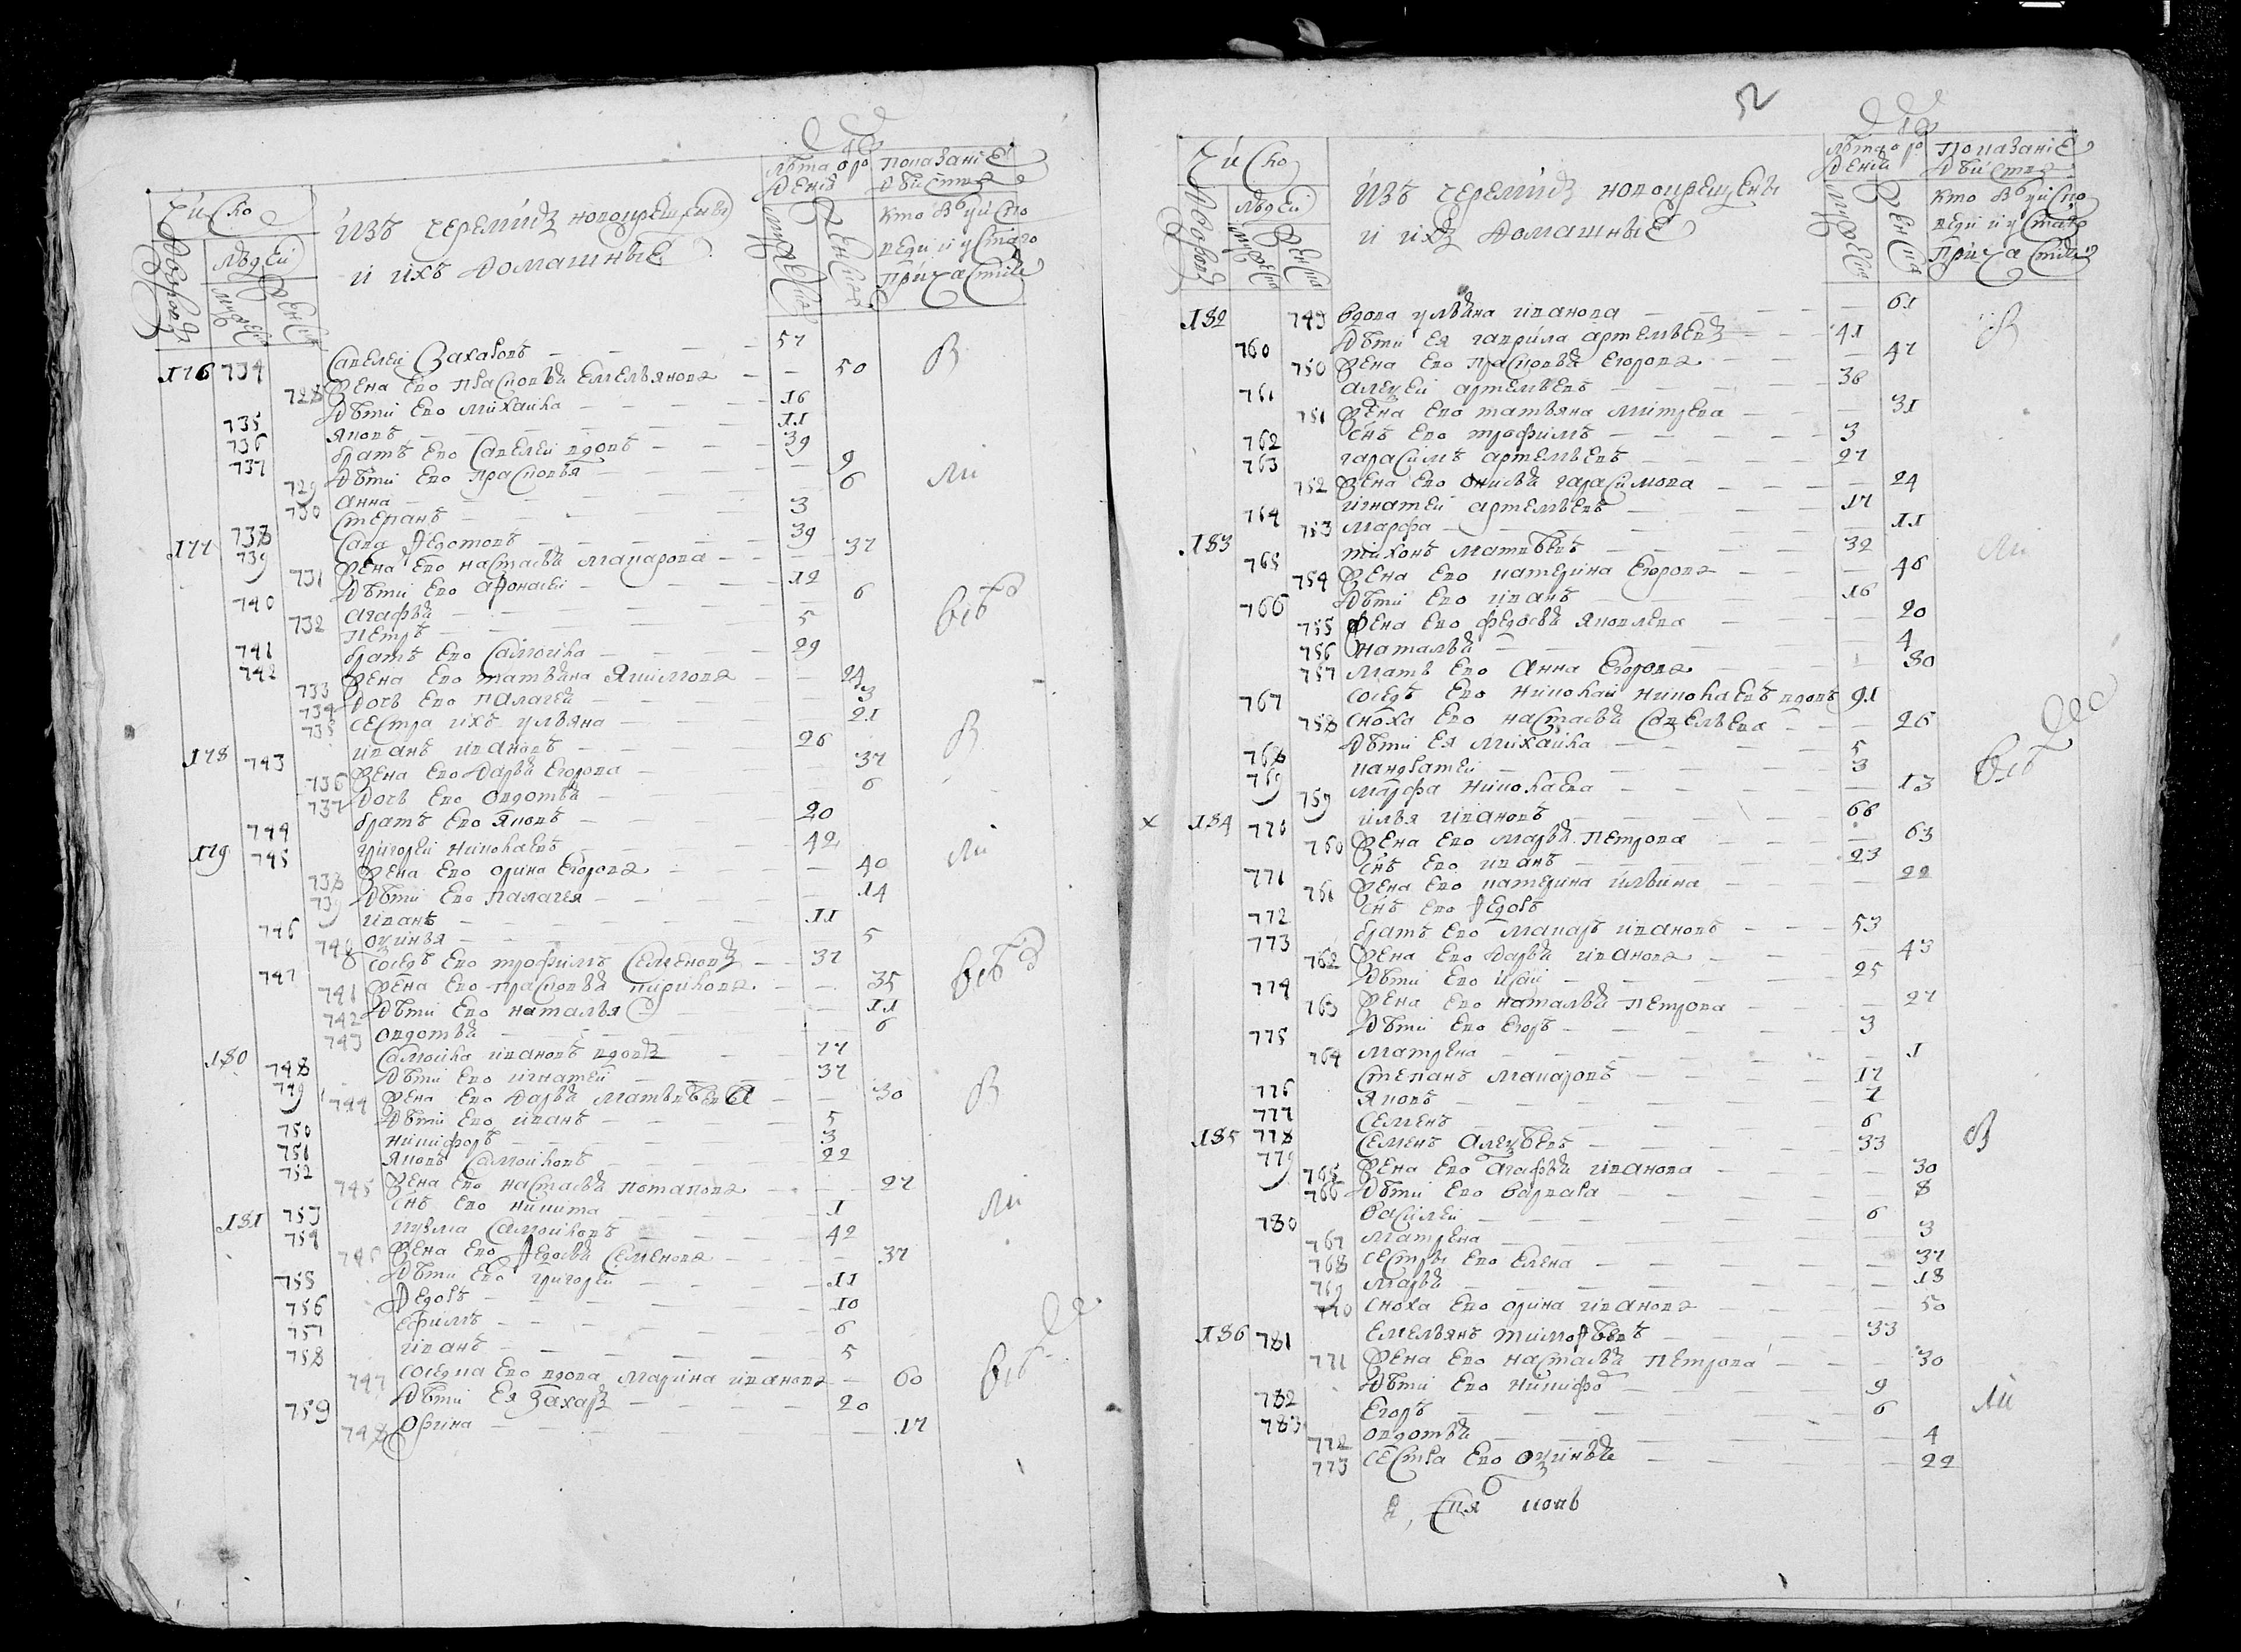 Число
Лѣта ро
дениѣ
Показание
дѣйства
Дворовъ
Людей
мужеска
женска
Изъ черемисъ новокрещены
и ихъ домашные
мужеска
женска
кто былъ у испо
веди и у святаго
причастия
176 734 Савелей Захаровъ 57
728 жена ево Прасковья Емельянова 50
735 дѣти ево Михайла 16
736 Яковъ 11
737 братъ ево Савелей вдовъ 39
729 дѣти ево Прасковья 9
730 Анна 6
738 Степанъ 3
177 739 Сава Федотовъ 39
731 жена ево Настасья Макарова 37
740 дѣти ево Афонасей 12
732 Агафья 6
741 Петръ 5
742 братъ ево Самойла 29
733 жена ево Татьяна Якимова 24
734 дочь ево Палагея 3
735 сестра ихъ Ульяна 21
178 743 Иванъ Ивановъ 26
736 жена ево Дарья Егорова 37
737 дочь ево Овдотья 6
744 братъ ево Яковъ 20
179 745 Григорей Николаевъ 42
738 жена ево Орина Егорова 40
739 дѣти ево Палагея 14
746 Иванъ 11
740 Оксинья 5
747 соседъ ево Трофимъ Семеновъ 37
741 жена ево Прасковья Кирилова 35
742 дѣти ево Наталья 11
743 Овдотья 6
180 748 Самойла Ивановъ вдовъ 77
749 дѣти ево Игнатей 37
744 жена ево Дарья Матвѣева 30
750 дѣти ево Иванъ 5
751 Никифоръ 3
752 Яковъ Самойловъ 22
745 жена ево Настасья Потапова 27
753 снъ ево Никита 1
181 754 Кузма Самойловъ 42
746 жена ево Федосья Семенова 37
755 дѣти ево Григорей 11
756 Федоръ 10
757 Ефимъ 6
758 Иванъ 5
747 соседка ево вдова Марина Иванова 60
759 дѣти ея Захаръ 20
748 Орина 17
52
Число
Лѣта ро
дений
Показание
дѣйства
Дворовъ
Людей
мужеска
женска
Изъ черемисъ новокрещены
и ихъ домашные
мужеска
женска
кто былъ у испо
веди и у святаго
причастия
182 749 вдова Ульяна Иванова 61
760 дѣти ея Гаврила Артемьевъ 41
750 жена ево Прасковья Егорова 47
761 Алексей Артемьевъ 36
751 жена ево Татьяна Митрева 31
762 снъ ево Трофимъ 3
763 Гарасимъ Артемьевъ 27
752 жена ево Онисья Гарасимова 24
764 Игнатей Артемьевъ 17
753 Марфа 11
183 765 Тихонъ Матвѣевъ 32
754 жена ево Катерина Егорова 46
766 дѣти ево Иванъ 16
755 жена ево Федосья Яковлева 20
756 Наталья 4
757 мать ево Анна Егорова 80
767 соседъ ево Николай Николаевъ вдовъ 91
758 сноха ево Настасья Савельева 26
768 дѣти ея Михайла 5
769 Кандратей 3
759 Марфа Николаева 13
х 184 770 Илья Ивановъ 66
760 жена ево Марья Петрова 63
771 снъ ево Иванъ 23
761 жена ево Катерина Ильина 22
772 снъ ево Федоръ
773 братъ ево Макаръ Ивановъ 53
762 жена ево Дарья Иванова 43
774 дѣти ево Исай 25
763 жена ево Наталья Петрова 27
775 дѣти ево Егоръ 3
764 Матрена 1
776 Степанъ Макаровъ 17
777 Яковъ 7
778 Семенъ 6
185 779 Семенъ Алексѣевъ 33
765 жена ево Агафья Иванова 30
766 дѣти ево Варвара 8
780 Василей 6
767 Матрена 3
768 сестры ево Елена 37
769 Марья 18
770 сноха ево Орина Иванова 50
186 781 Емельянъ Тимофѣевъ 33
771 жена ево Настасья Петрова 30
782 дѣти ево Никифоръ 9
783 Егоръ 6
772 Овдотья 4
773 сестра ево Оксинья 22